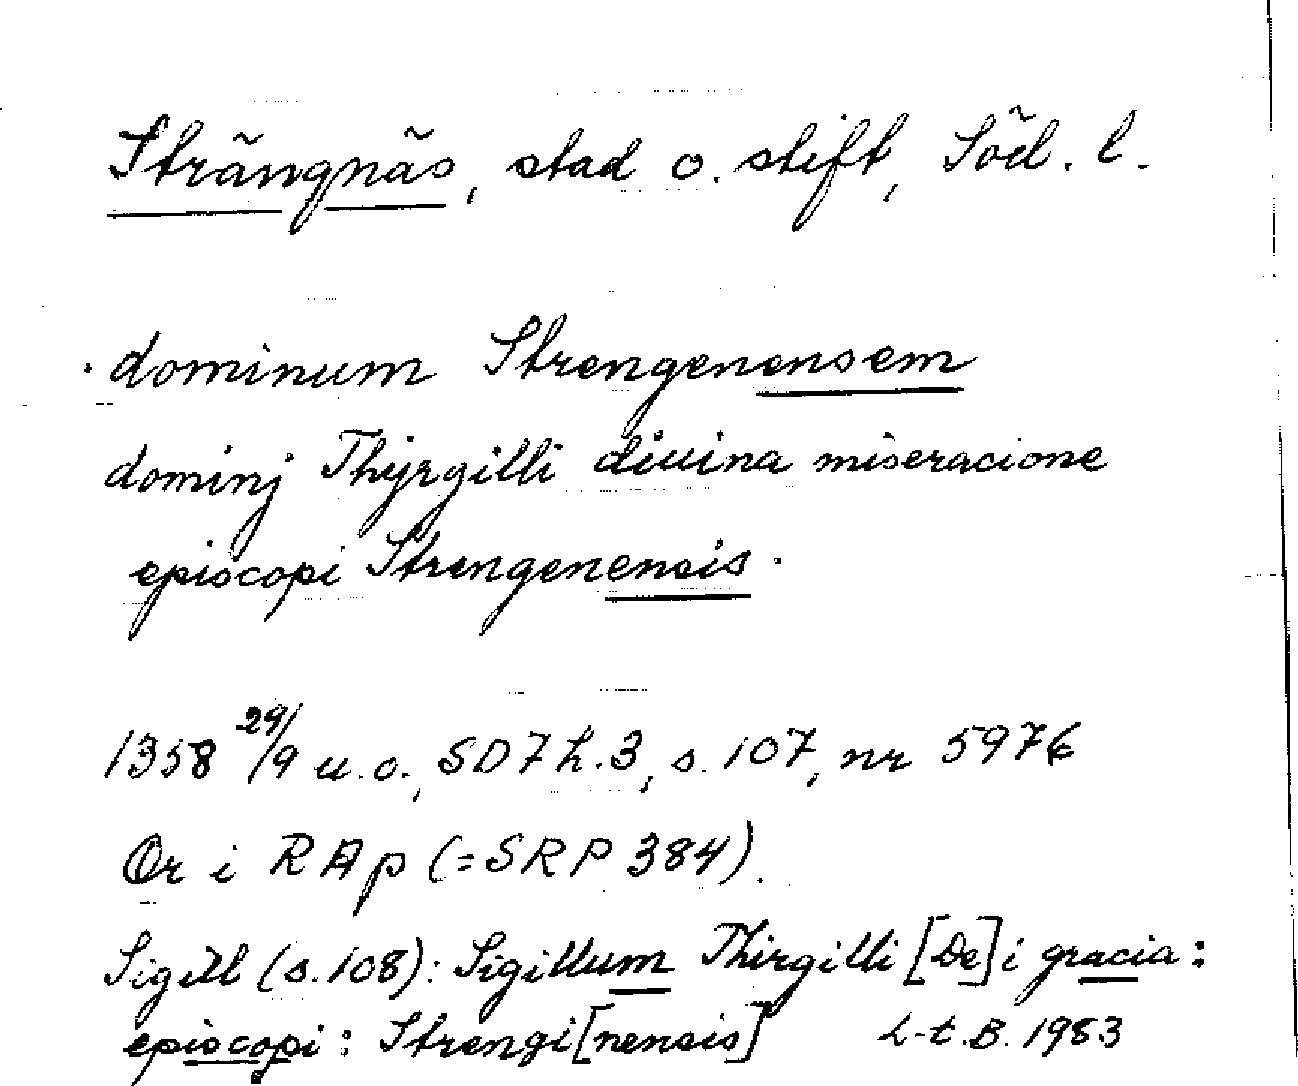 Strängnäs, stad o. stift, Söd. l.
dominum Strengenensem
dominj Thijrgilli diuina miseracione
episcopi Strengenensis.
1358 29/9 u.o., SD7 h.3, s. 107, nr 5976
Or i RAp (=SRP 384).
Sigill (s.108): Sigillum Thirgilli [De]i gracia:
episcopi: Strengi[nensis] L-t.B. 1983